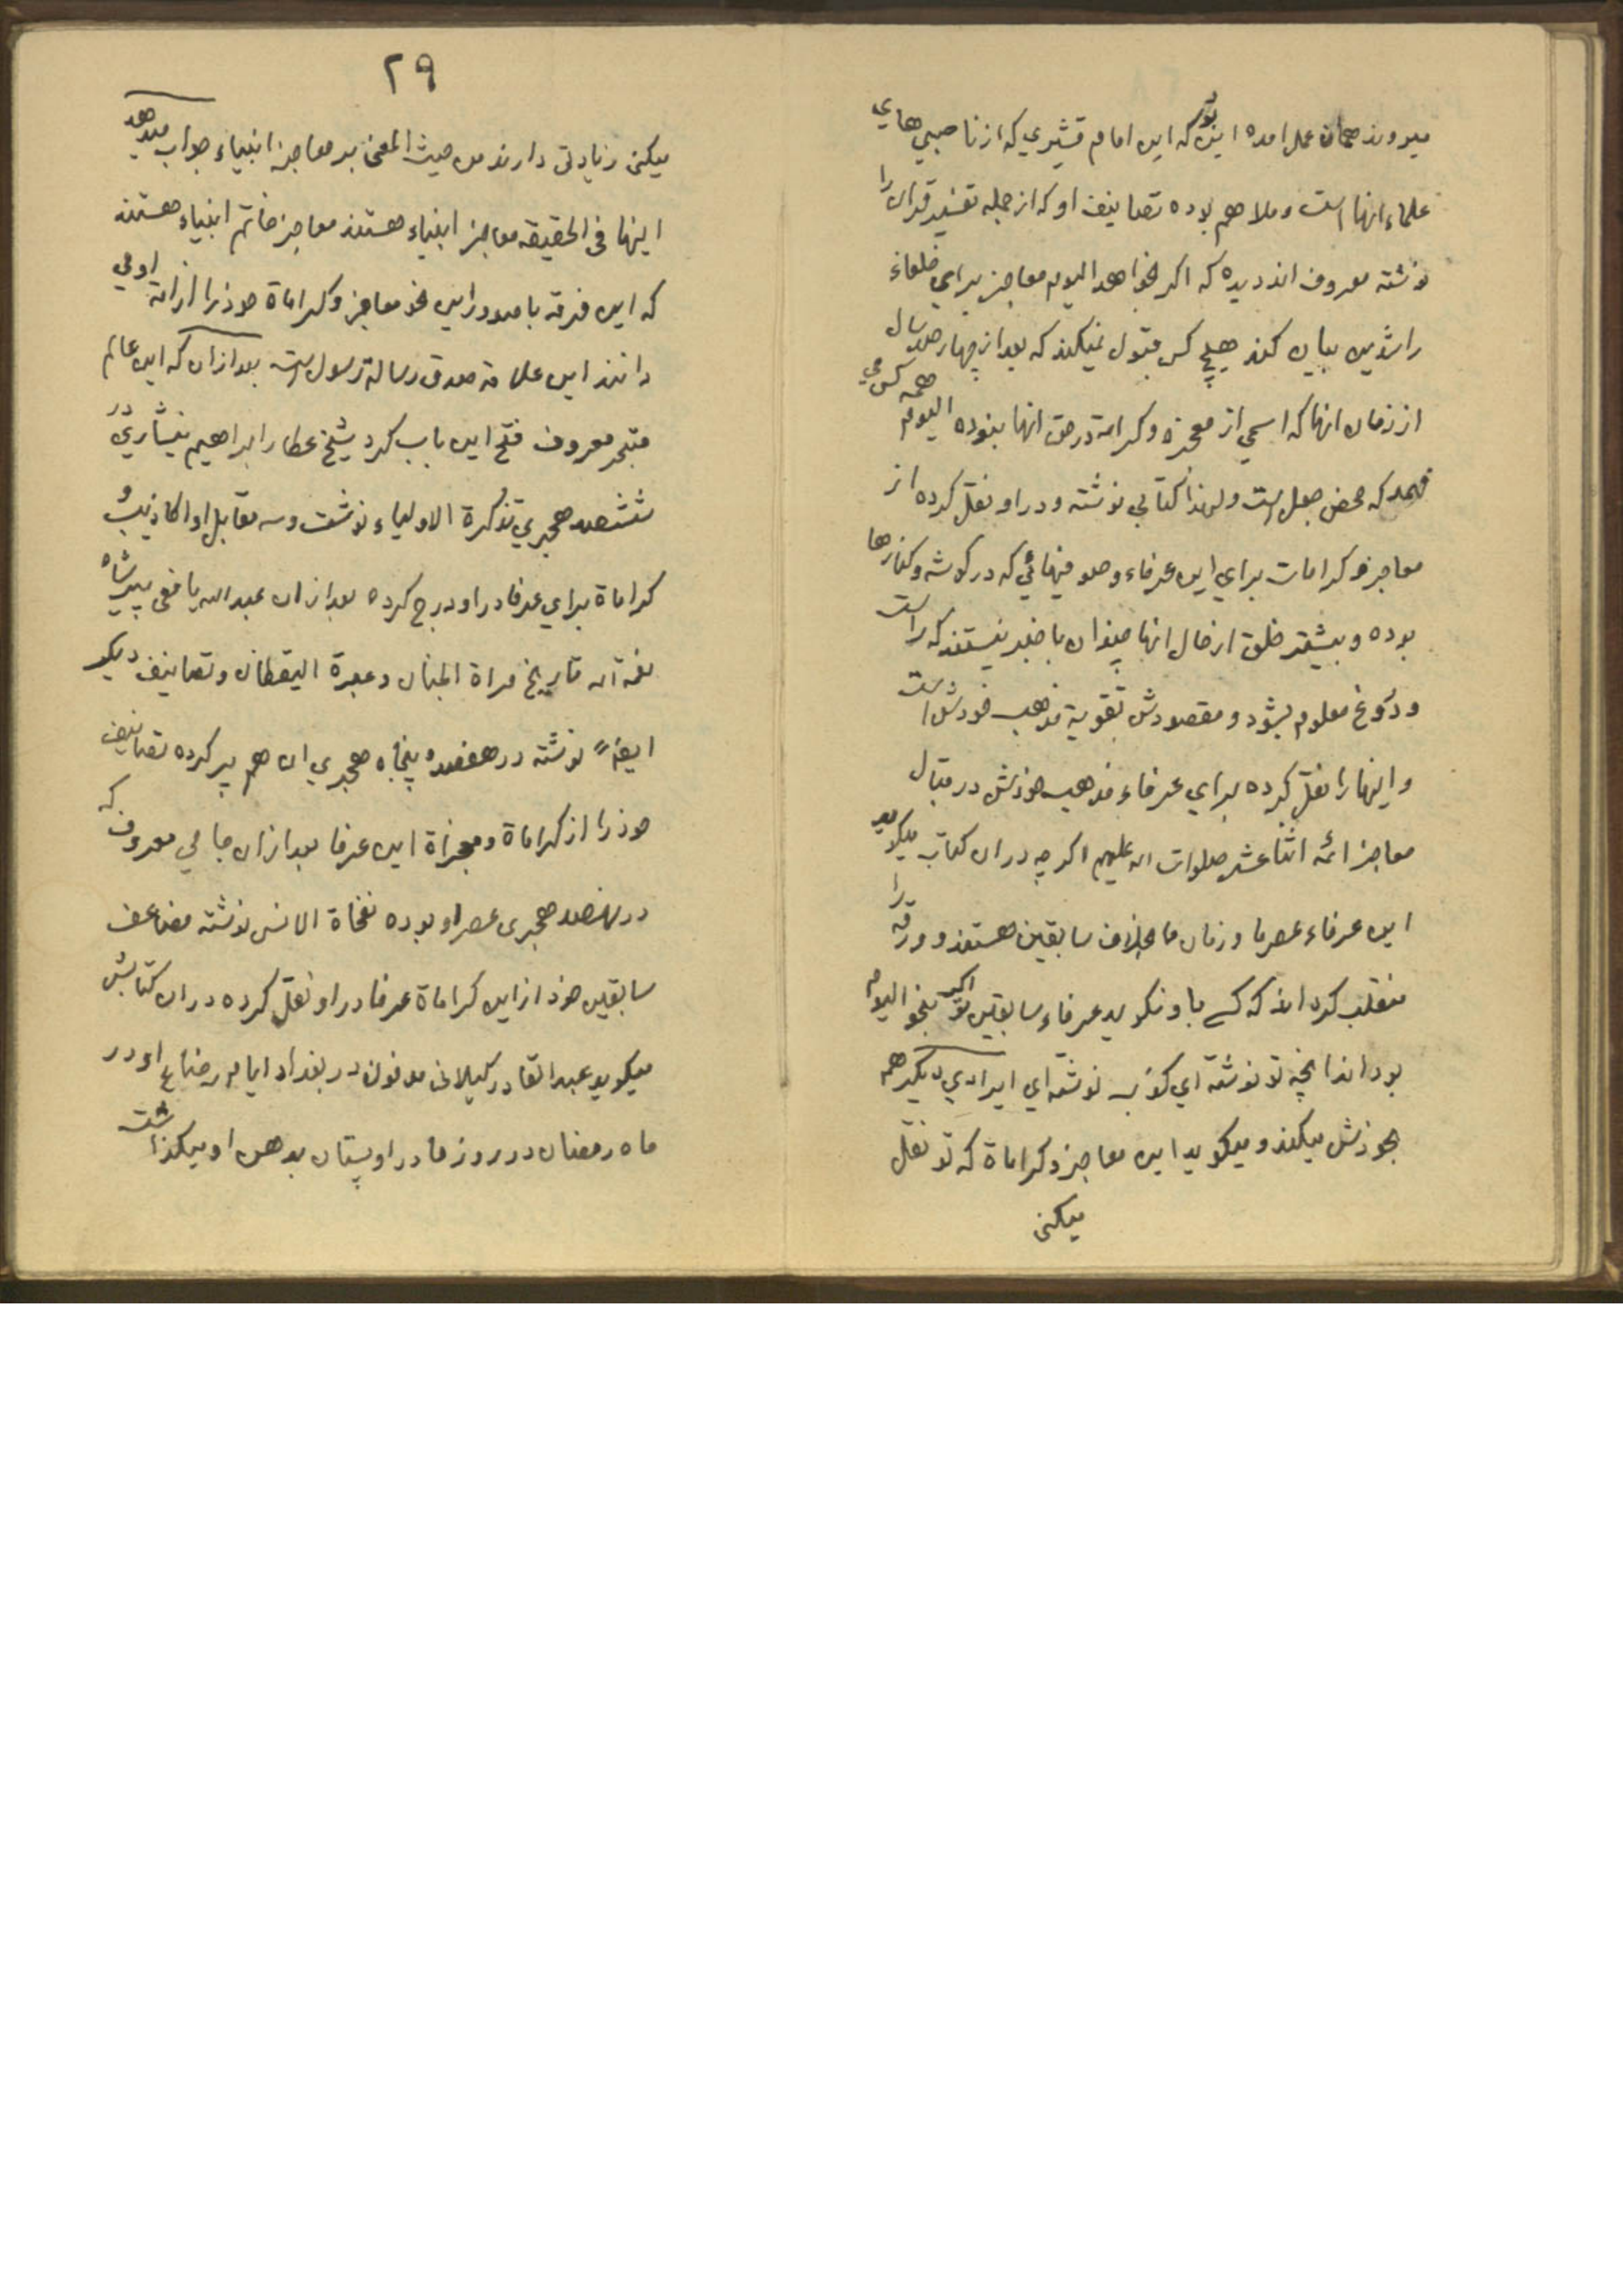 میروند همان عمل امده این بود که این امام قشیري که از ناصبي هاي
علماء انها است و ملا هم بوده تصانیف او که از جمله تفسیر قران را
نوشته معروف اند دیده که اگر بخواهد الیوم معاجز براي خلفاء
راشدین بیان کند هیچ کس قبول نمیکند که بعد از چهار صد سال
از زمان انها که اسمي از معجزه و کرامة در حق انها نبوده الیوم همه کس مي
فهمد که محض جعل است و لهذا کتابي نوشته و در او نقل کرده از
معاجز و کرامات براي این عرفاء و صوفیهائي که در گوشه و کنارها
بوده و بیشتر خلق از حال انها چنوان با خبر نیستند که راست
و دروغ معلوم بشود و مقصودش تقویة مذهب خودش است
و اینها را نقل کرده براي عرفاء مذهب خودش در مقابل
معاجز ائمه اثنا عشر صلوات اله علیهم اگر چه در ان کتاب میگوید
این عرفاء عصر ما و زمان ما بخلاف سابقین هستند و ورقه را
منقلب کرده اند که کسے باو نگوید عرفاء سابقین تو اگر بنحو الیوم
بودند انچه تو نوشته اي کذب نوشته اي ایرادي دیگر هم
بخودش میکند و میگوید این معاجز و کراماة که تو نقل
میکنی
۲۹
میکنی زیادتی دارند من حیث المعنی بر معاجز انبیاء جواب میدهد
اینها فی الحقیقه معاجز انبیاء هستند معاجز خاتم انبیاء هستند
که این فرقه با صدور این نحو معاجز و کراماة خود را از امة او مي
دانند این علامة صدق رسالة رسول است بعد از ان که این عالم
متبحر معروف فتح این باب کرد شیخ عطار ابراهیم نیشاري در
ششصد هجري تذکرة الاولیاء نوشت و سه مقابل او اکاذیب و
کراماة براي عرفا در او درج کرده بعد از ان عبد اله یافعی پیر شاه
نعمة اله تاریخ مراة الجنان و عبرة الیقظان و تصانیف دیگر
ایضاً نوشته در هفصد و پنجاه هجري ان هم پر کرده تصانیف
خود را از کراماة و معجزاة این عرفا بعد از ان جامي معروف که
در نهصد هجری عصر او بوده نفحاة الانس نوشته مضاعف
سابقین خود از این کراماة عرفا در او نقل کرده در ان کتابش
میگوید عبد القادر گیلانی مدفون در بغداد ایام رضاع او در
ماه رمضان در روز مادر او پستان بدهن او میگذاشت